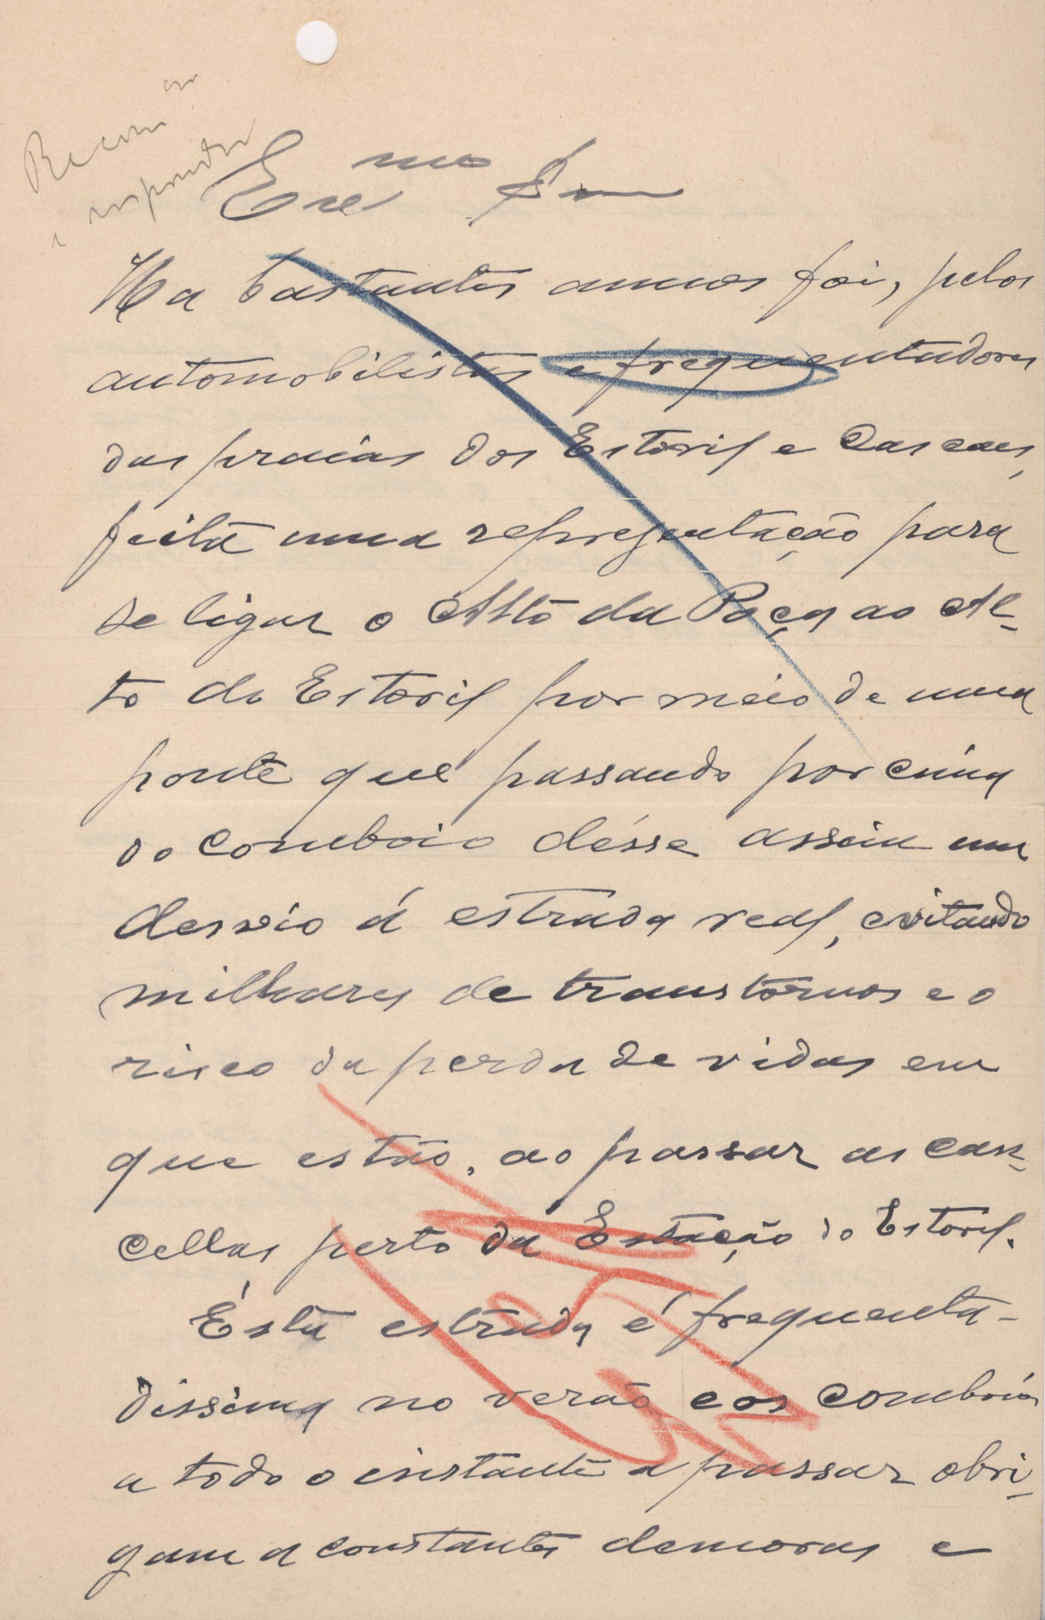 Recom
e responder
Exe mo Snr
Ha bastantes annos foi, pelos
automobilistas e frequentadores
das praias dos Estoris e Cascaes,
feita uma representação para
se ligar o Alto da Poça ao Al-
to do Estoril por meio de uma
ponte que passando por cima
do comboio désse assim um
desvio á estrada real, evitando
milhares de transtornos e o
risco da perda de vidas em
que estão, ao passar as can-
cellas perto da Estação do Estoril.
Ésta estrada é frequenta-
dissima no verão e os comboios
a todo o instante a passar obri-
gam a constantes demoras e